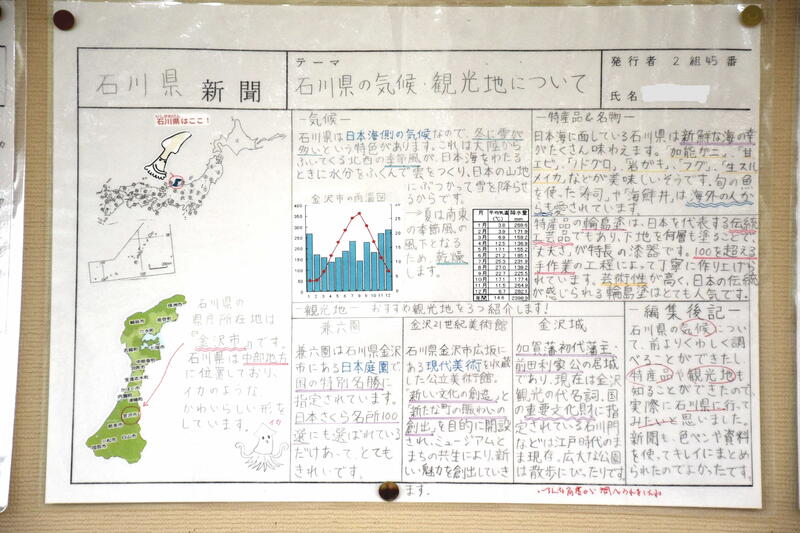 石川県 新聞
テーマ
石川県の気候・観光地について
発行者 2組45番
氏名
石川県はここ!
石川県の
県庁所在地は
「金沢市」です。
石川県は中部地方
に位置しており、
イカのような、
かわいらしい形を
しています。
イカ
-気候-
石川県は日本海側の気候なので、冬に雪が
多いという特色があります。これは大陸から
ふいてくる北西の季節風が、日本海をわたる
ときに水分をふくんで雲をつくり、日本の山地
にぶつかって雪を降らせ
るからです。
→夏は南東
の季節風の
風下となる
ため、乾燥
します。
金沢市の雨温図
月 平均気温(℃) 降水量mm
-観光地- おすすめ観光地を3つ紹介します!
兼六園
兼六園は石川県金沢
市にある日本庭園で
国の特別名勝に
指定されています。
日本さくら名所100
選にも選ばれている
だけあって、とても
きれいです。
金沢21世紀美術館
石川県金沢市広坂に
ある現代美術を収蔵
した公立美術館。
「新しい文化の創造」と
「新たな町の賑わいの
創出」を目的に開設
され、ミュージアムと
まちの共生により、新
しい魅力を創出していき
ます。
金沢城
加賀藩初代藩主・
前田利家公の居城
であり、現在は金沢
観光の代名詞。国
の重要文化財に指
定されている石川門
などは江戸時代のま
ま現存。広大な公園
は散歩にぴったりです。
-特産品&名物-
日本海に面している石川県は新鮮な海の幸
がたくさん味わえます。「加能ガニ」、「甘
エビ」、「ノドグロ」、「岩がき」、「フグ」、「生スル
メイカ」などが美味しいそうです。旬の色
を使った寿司や海鮮丼は、海外の人か
らも愛されています。
特産品の輪島塗は、日本を代表する伝統
工芸品でもあり、下地を何層も塗ることで、
「丈夫さ」が特長の漆器です。100を超える
手作業の工程によって丁寧に作り上げら
れています。芸術性が高く、日本の伝統
が感じられる輪島塗はとても人気です。
-編集後記-
石川県の気候につい
て、前よりくわしく調
べることができたし、
特産品や観光地も
知ることができたので、
実際に石川県に行って
みたいと思いました。
新聞も、色ペンや資料
を使ってキレイにまとめ
られたのでよかったです。